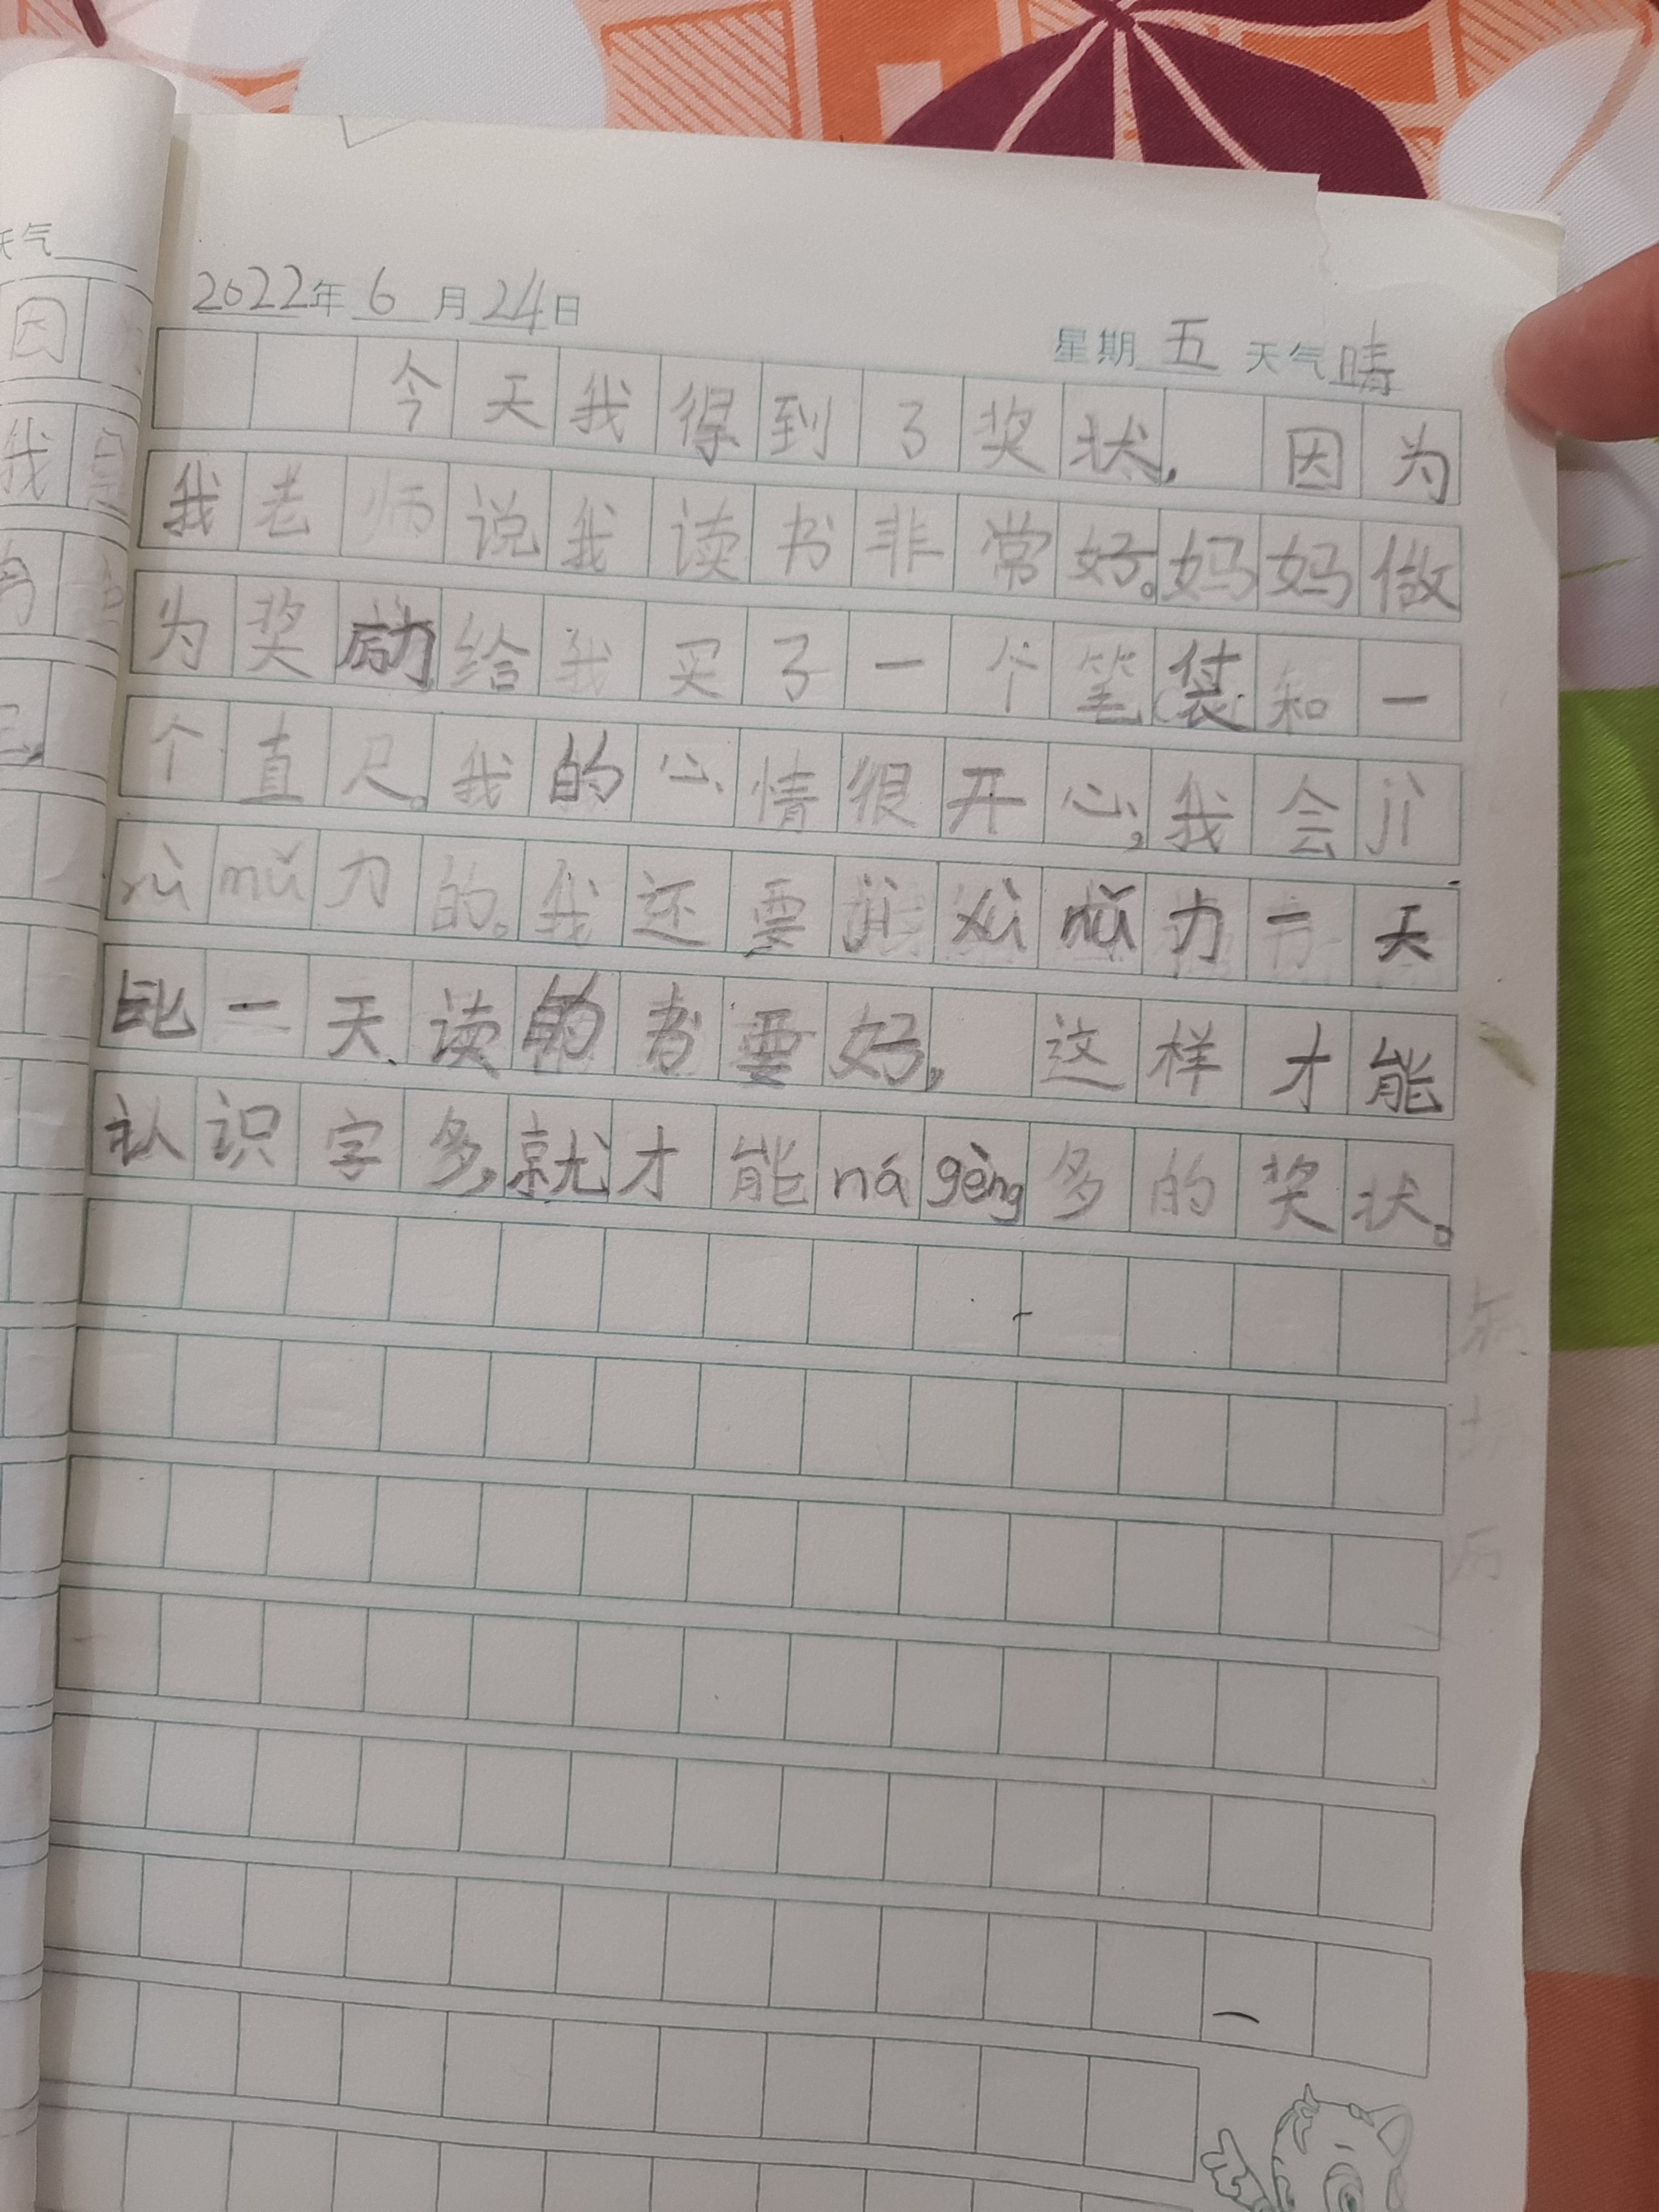 天气
2022年 6 月 24 日
星期 五 天气 晴
今天我得到了奖状，因为
我老师说我读书非常好。妈妈做
为奖励给我买了一个笔袋和一
个直尺。我的心情很开心，我会jì
xù nǔ力的。我还要jì xù nǔ力一天
比一天读的书要好，这样才能
认识字多，就才能ná gèng多的奖状。
因
我